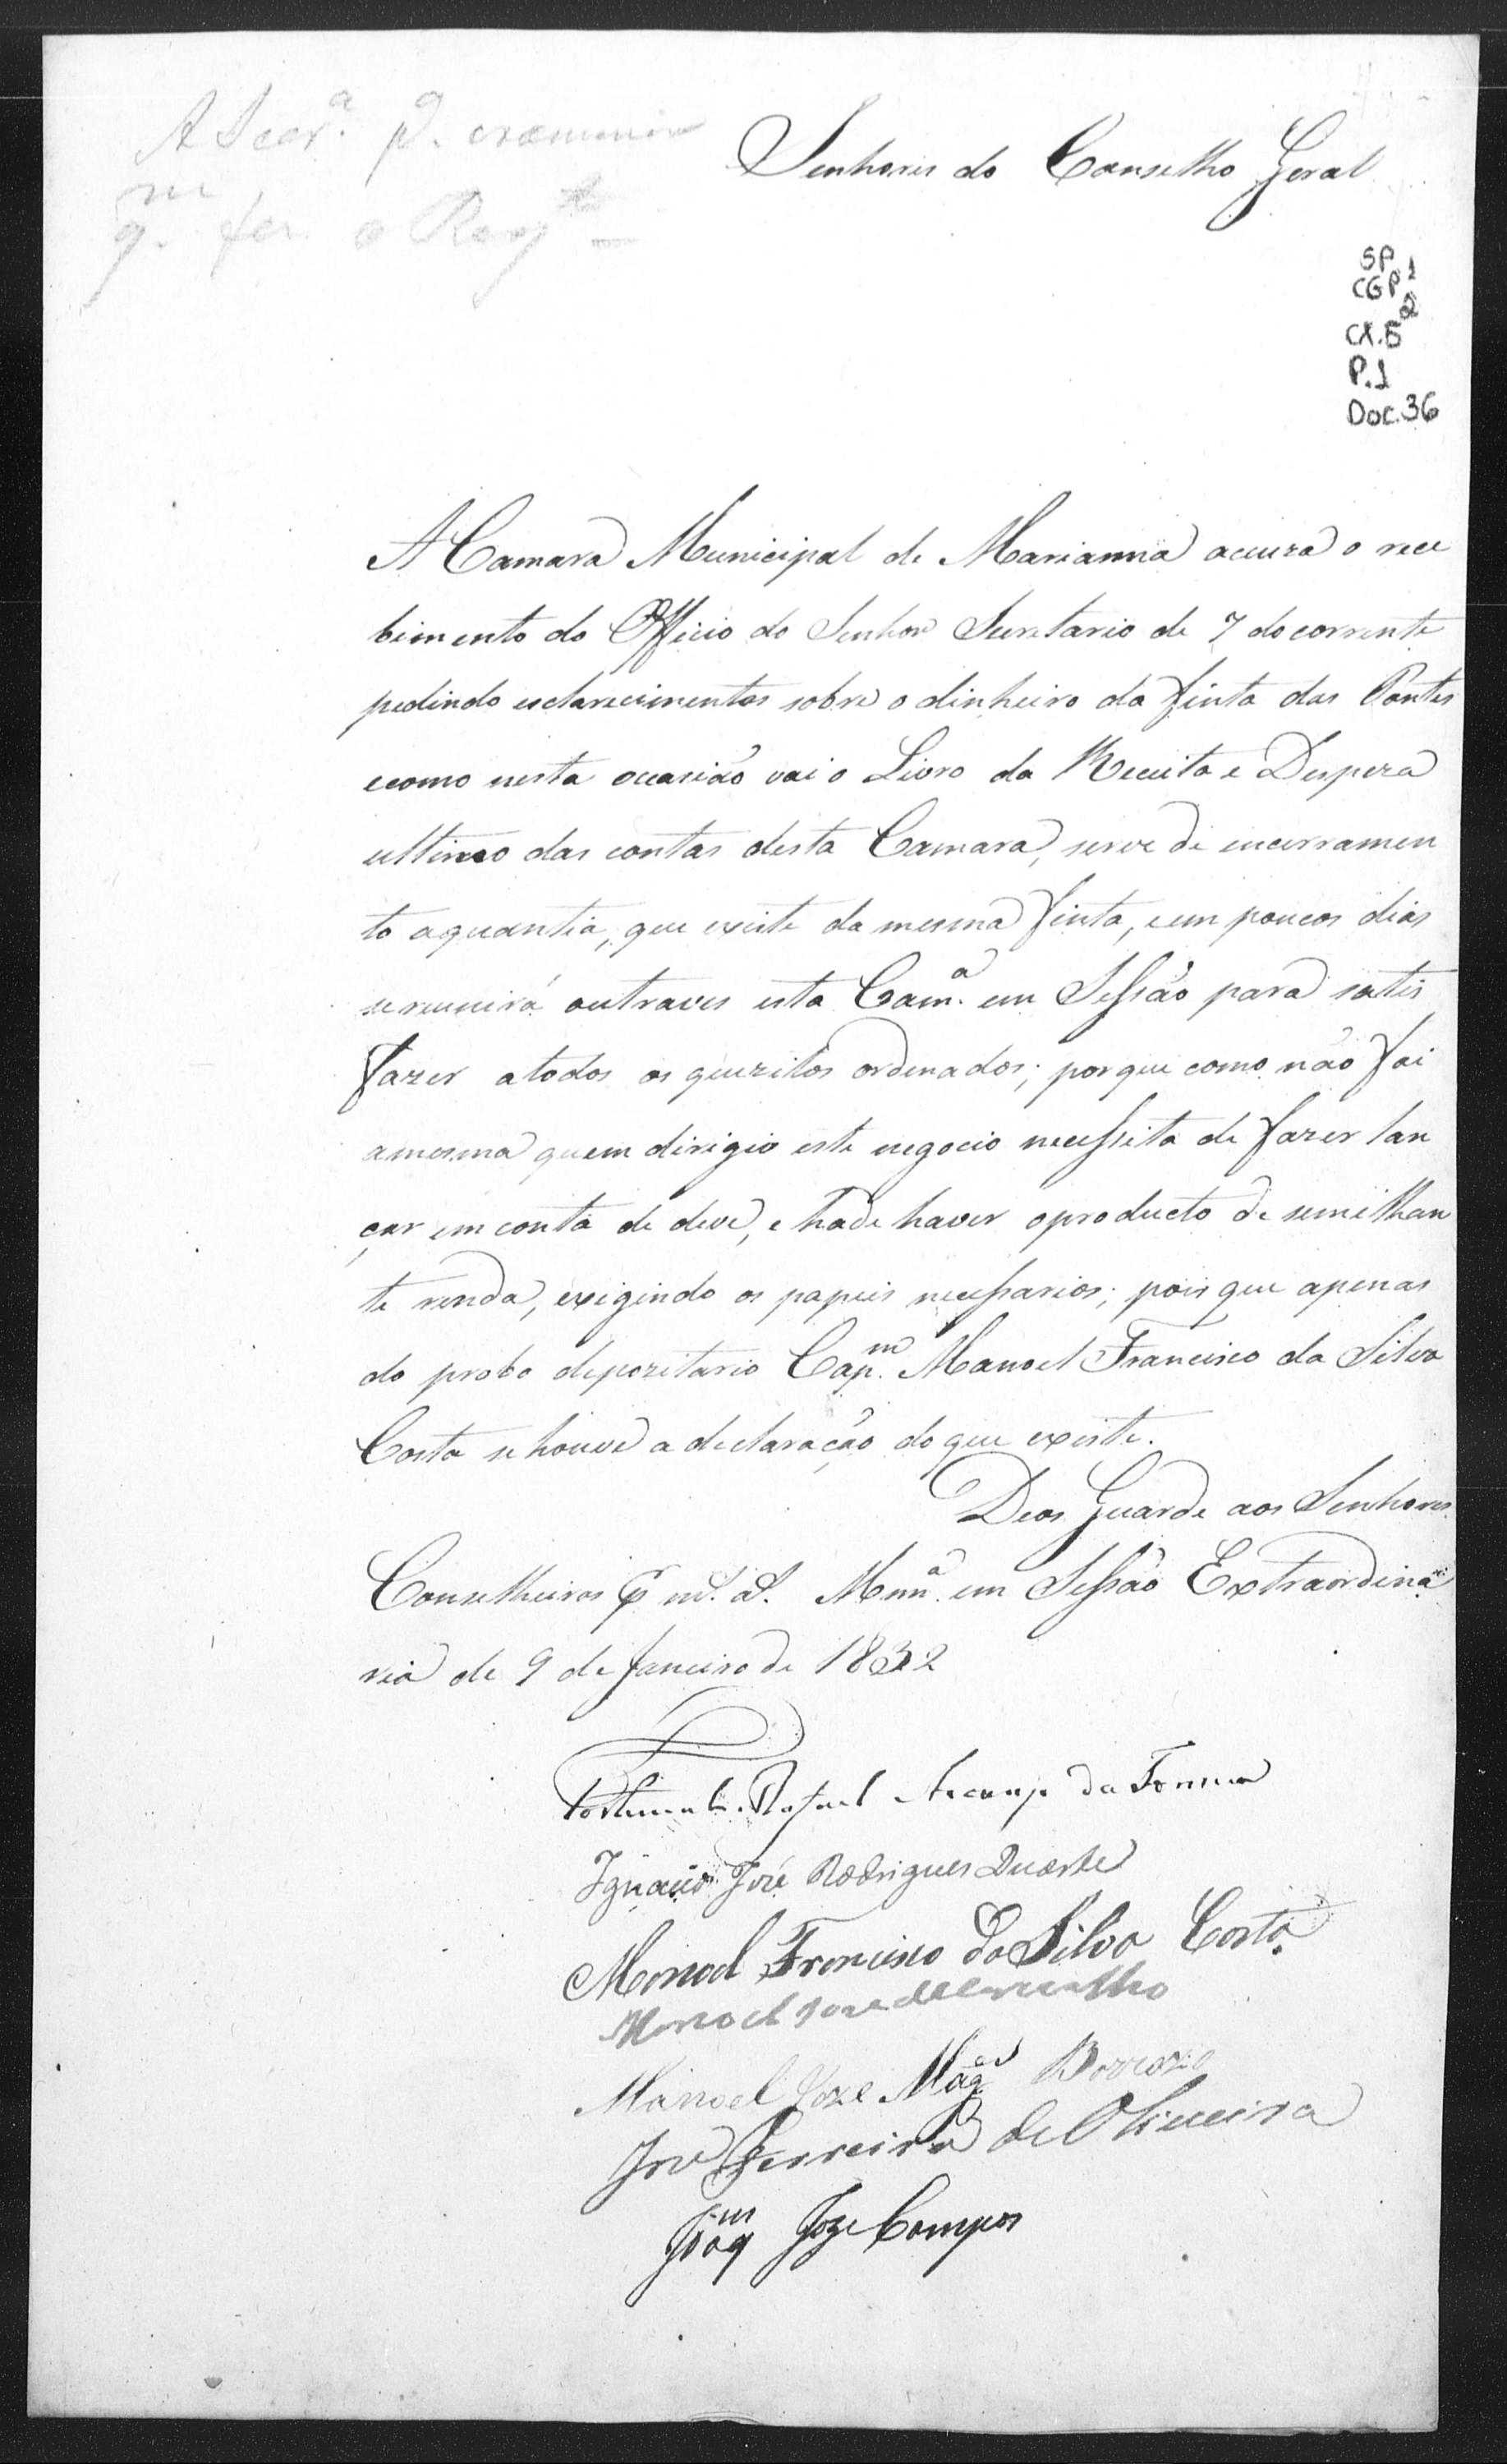 A Secr.ª p.ª examinar
q.m fez o Reg.to
Senhores do Conselho Geral
SP
CGP 1
CX. 5 2
P. 1
Doc. 36
A Camara Municipal de Marianna acuza o rece
bimento do Officio do Senhor Secretario de 7 do corrente
pedindo esclarecimentos sobre o dinheiro da finta das Pontes
ecomo nesta occasião vai o Livro da Receita e Despeza
ultimo das contas desta Camara, serve de encerramen
to aquantia, que existe da mesma finta, eem poucos dias
sereunirá outraves esta Cam.ª em Sessão para satis
fazer atodos os quezitos ordenados; porque como não foi
amesma quem dirigio este negocio necessita de fazer lan
çar em conta de deve, e hade haver oproducto de semilhan
te renda, exigindo os papeis necessarios; pois que apenas
do probo depozitario Cap.m Manoel Francisco da Silva
Costa se houve a declaração do que existe.
Deos Guarde aos Senhores
Conselheiros p m.s a.s Mnn.ª em Sessão Extraordina
ria de 9 de Janeiro de 1832
Rafael Arcanjo da Fonseca
Ignacio José Rodrigues Duarte
Manoel Francisco da Silva Costa
Manoel Joze de Carvalho
Manoel Joze Mag.es Barrozo
José Ferreira de Oliveira
Joaq.m Joze Campos